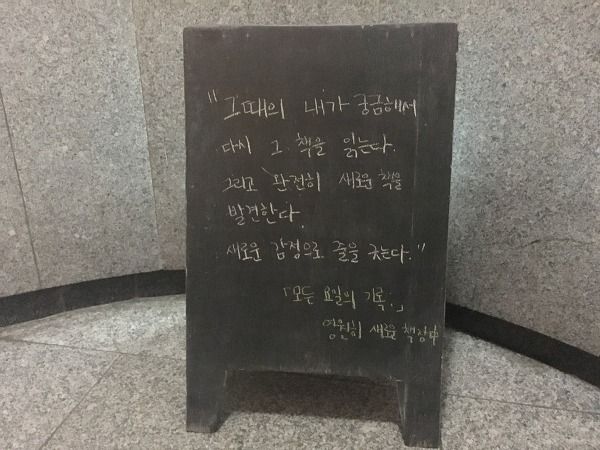 "그때의 내가 궁금해서
다시 그 책을 읽는다.
그리고 완전히 새로운 책을
발견한다.
새로운 감정으로 줄을 긋는다."
「모든 요일의 기록.」
영원히 새로운 책장中